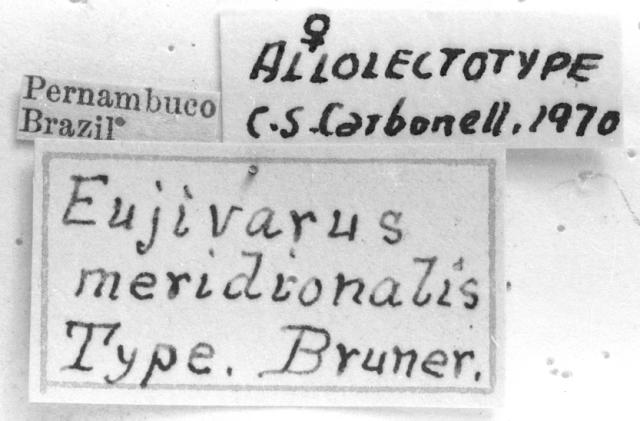 ♀
ALLOLECTOTYPE
C.S. Carbonell. 1970
Pernambuco
Brazil
Eujivarus
meridionalis
Type. Bruner.